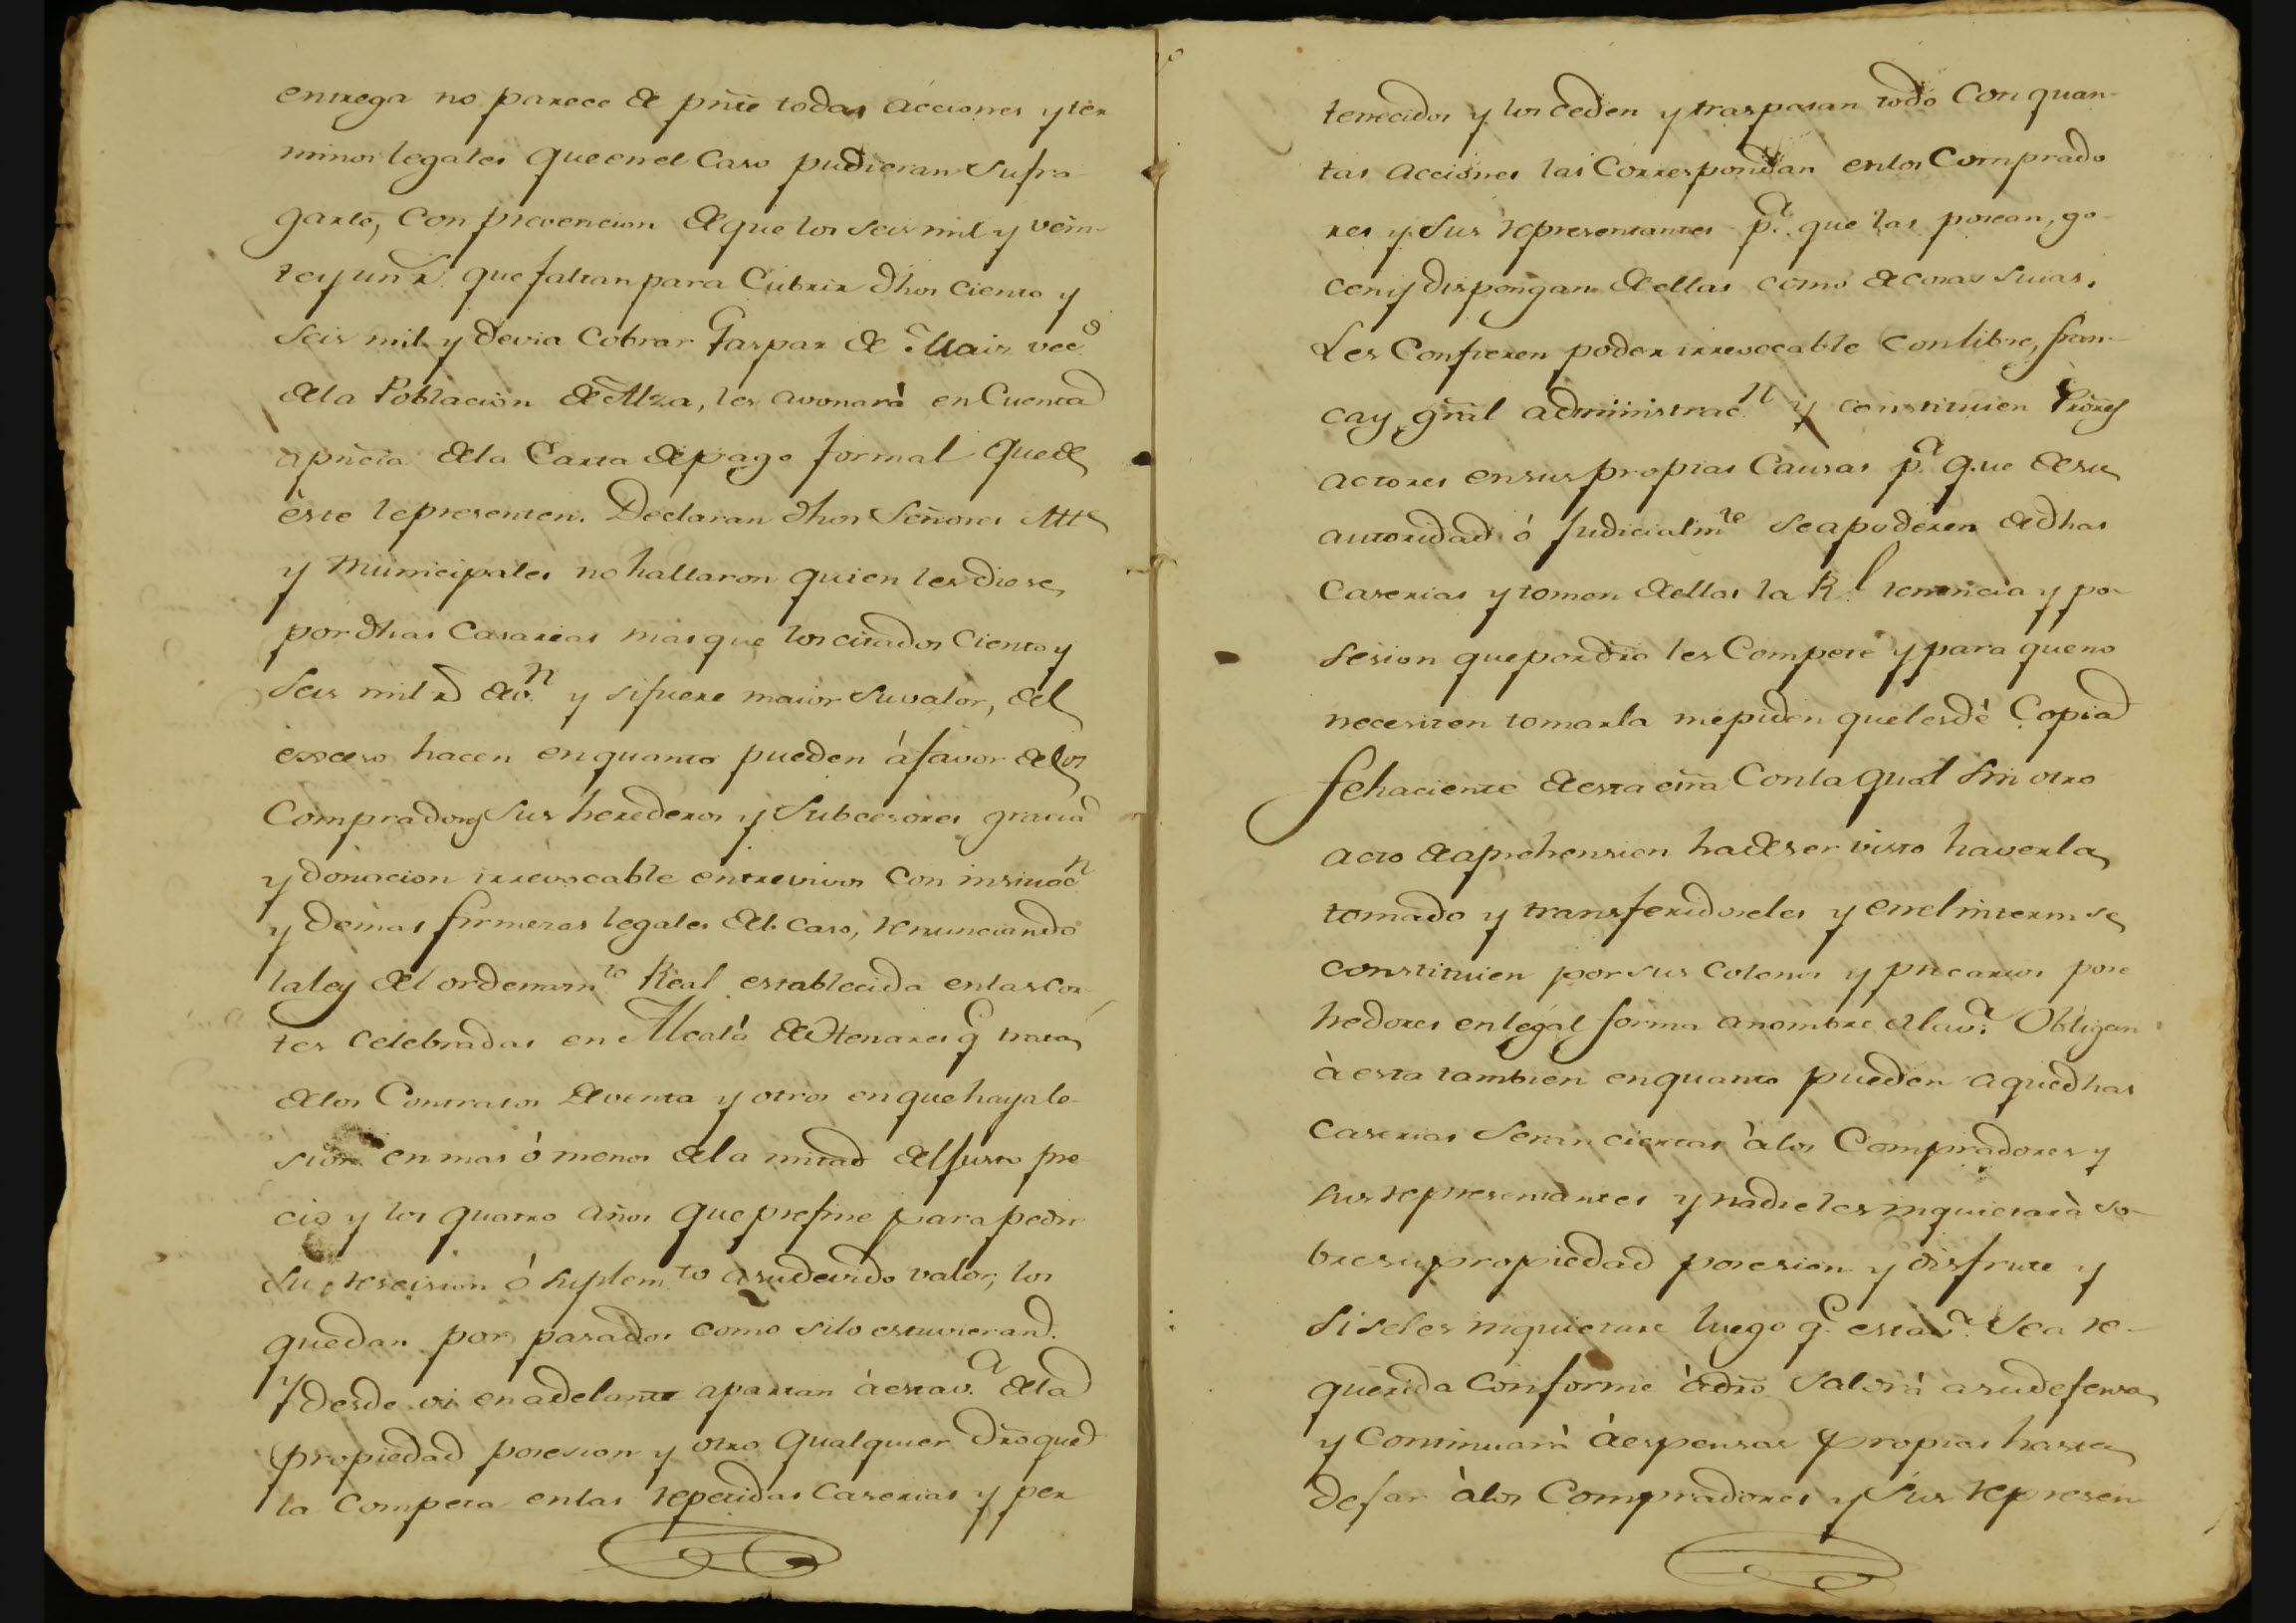 entrega no parece de pñte todas acciones y tér
minos legales que en el Caso pudieran Sufra
garle, con prevencion de que los seis mil y vein-
te y un r.s que faltan para Cubrir dhos ciento y
seis mil y devia cobrar Gaspar de vec.o
de la Poblacion de Alza, les avonará en Cuenta
apñcia de la Carta de pago formal que de
este le presenten. Declaran dhos Señores Alle
y Municipales no hallaron quien les diese
por dhas Casarias mas que los citados Ciento y
Seis mil r.s de v.n y si fuere maior su valor, del
exceso hacen en quanto pueden á favor de los
Compradores Sus herederos y Subcesores gracia
y donacion irrevocable entrevivos con insinuac.n
y demas firmezas legales del caso, renunciando
la ley del ordenam.to Real establecida en las Cor-
tes celebradas en Alcalá de Henares q.e trata
de los Contratos de venta y otros en que haya le-
sion en mas ó menos de la mitad del justo pre
cio y los quatro años que prefine para pedir
su rescision ó suplem.to a su devido valor, los
quedan por pasados como si lo estuvieran.
Y desde oi en adelante apartan á esta v.a de la
propiedad posesion y otro qualquier dro que
la Competa en las repetidas Caserias y per
tenecidos y los ceden y traspasan todo con quan-
tas acciones las Correspondan en los Comprado
res y sus representantes p.a que las posean, go-
cen y dispongan de ellas como de cosas suias.
Les Confieren poder irrevocable con libre, fran-
ca y gral administrac.n y constituien Prores
actores en sus propias Causas p.a que de su
autoridad ó Judicialm.te se apoderen de dhas
Caserias y tomen de ellas la R.l tenencia y po-
sesion que por dro les Compete y para que no
necesiten tomarla me piden que les dé Copia
fehaciente de esta esrra Con la qual sin otro
acto de aprehension ha de ser visto haverla
tomado y transferidoseles y en el interin se
constituien por sus colonos y precarios pose
hedores en legal forma a nombre de la v.a Obligan
à esta tambien en quanto pueden a que dhas
Caserias seran ciertas à los Compradores y
sus representantes y nadie les inquietará so-
bre su propiedad posesion y disfrute y
si se les inquietare luego q.e esta v.a sea re-
querida conforme á dro saldrá a su defensa
y continuará á espensas propias hasta
dejar à los Compradores y sus represen